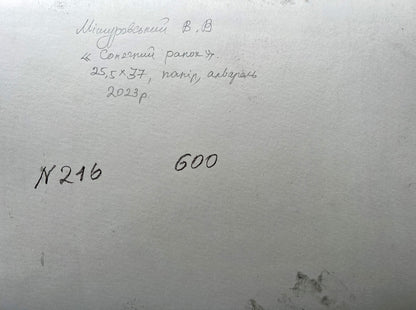 Мішуровський В.В
« Сонячний ранок».
25,5×37, папір, акварель
2023р.
N 216 600